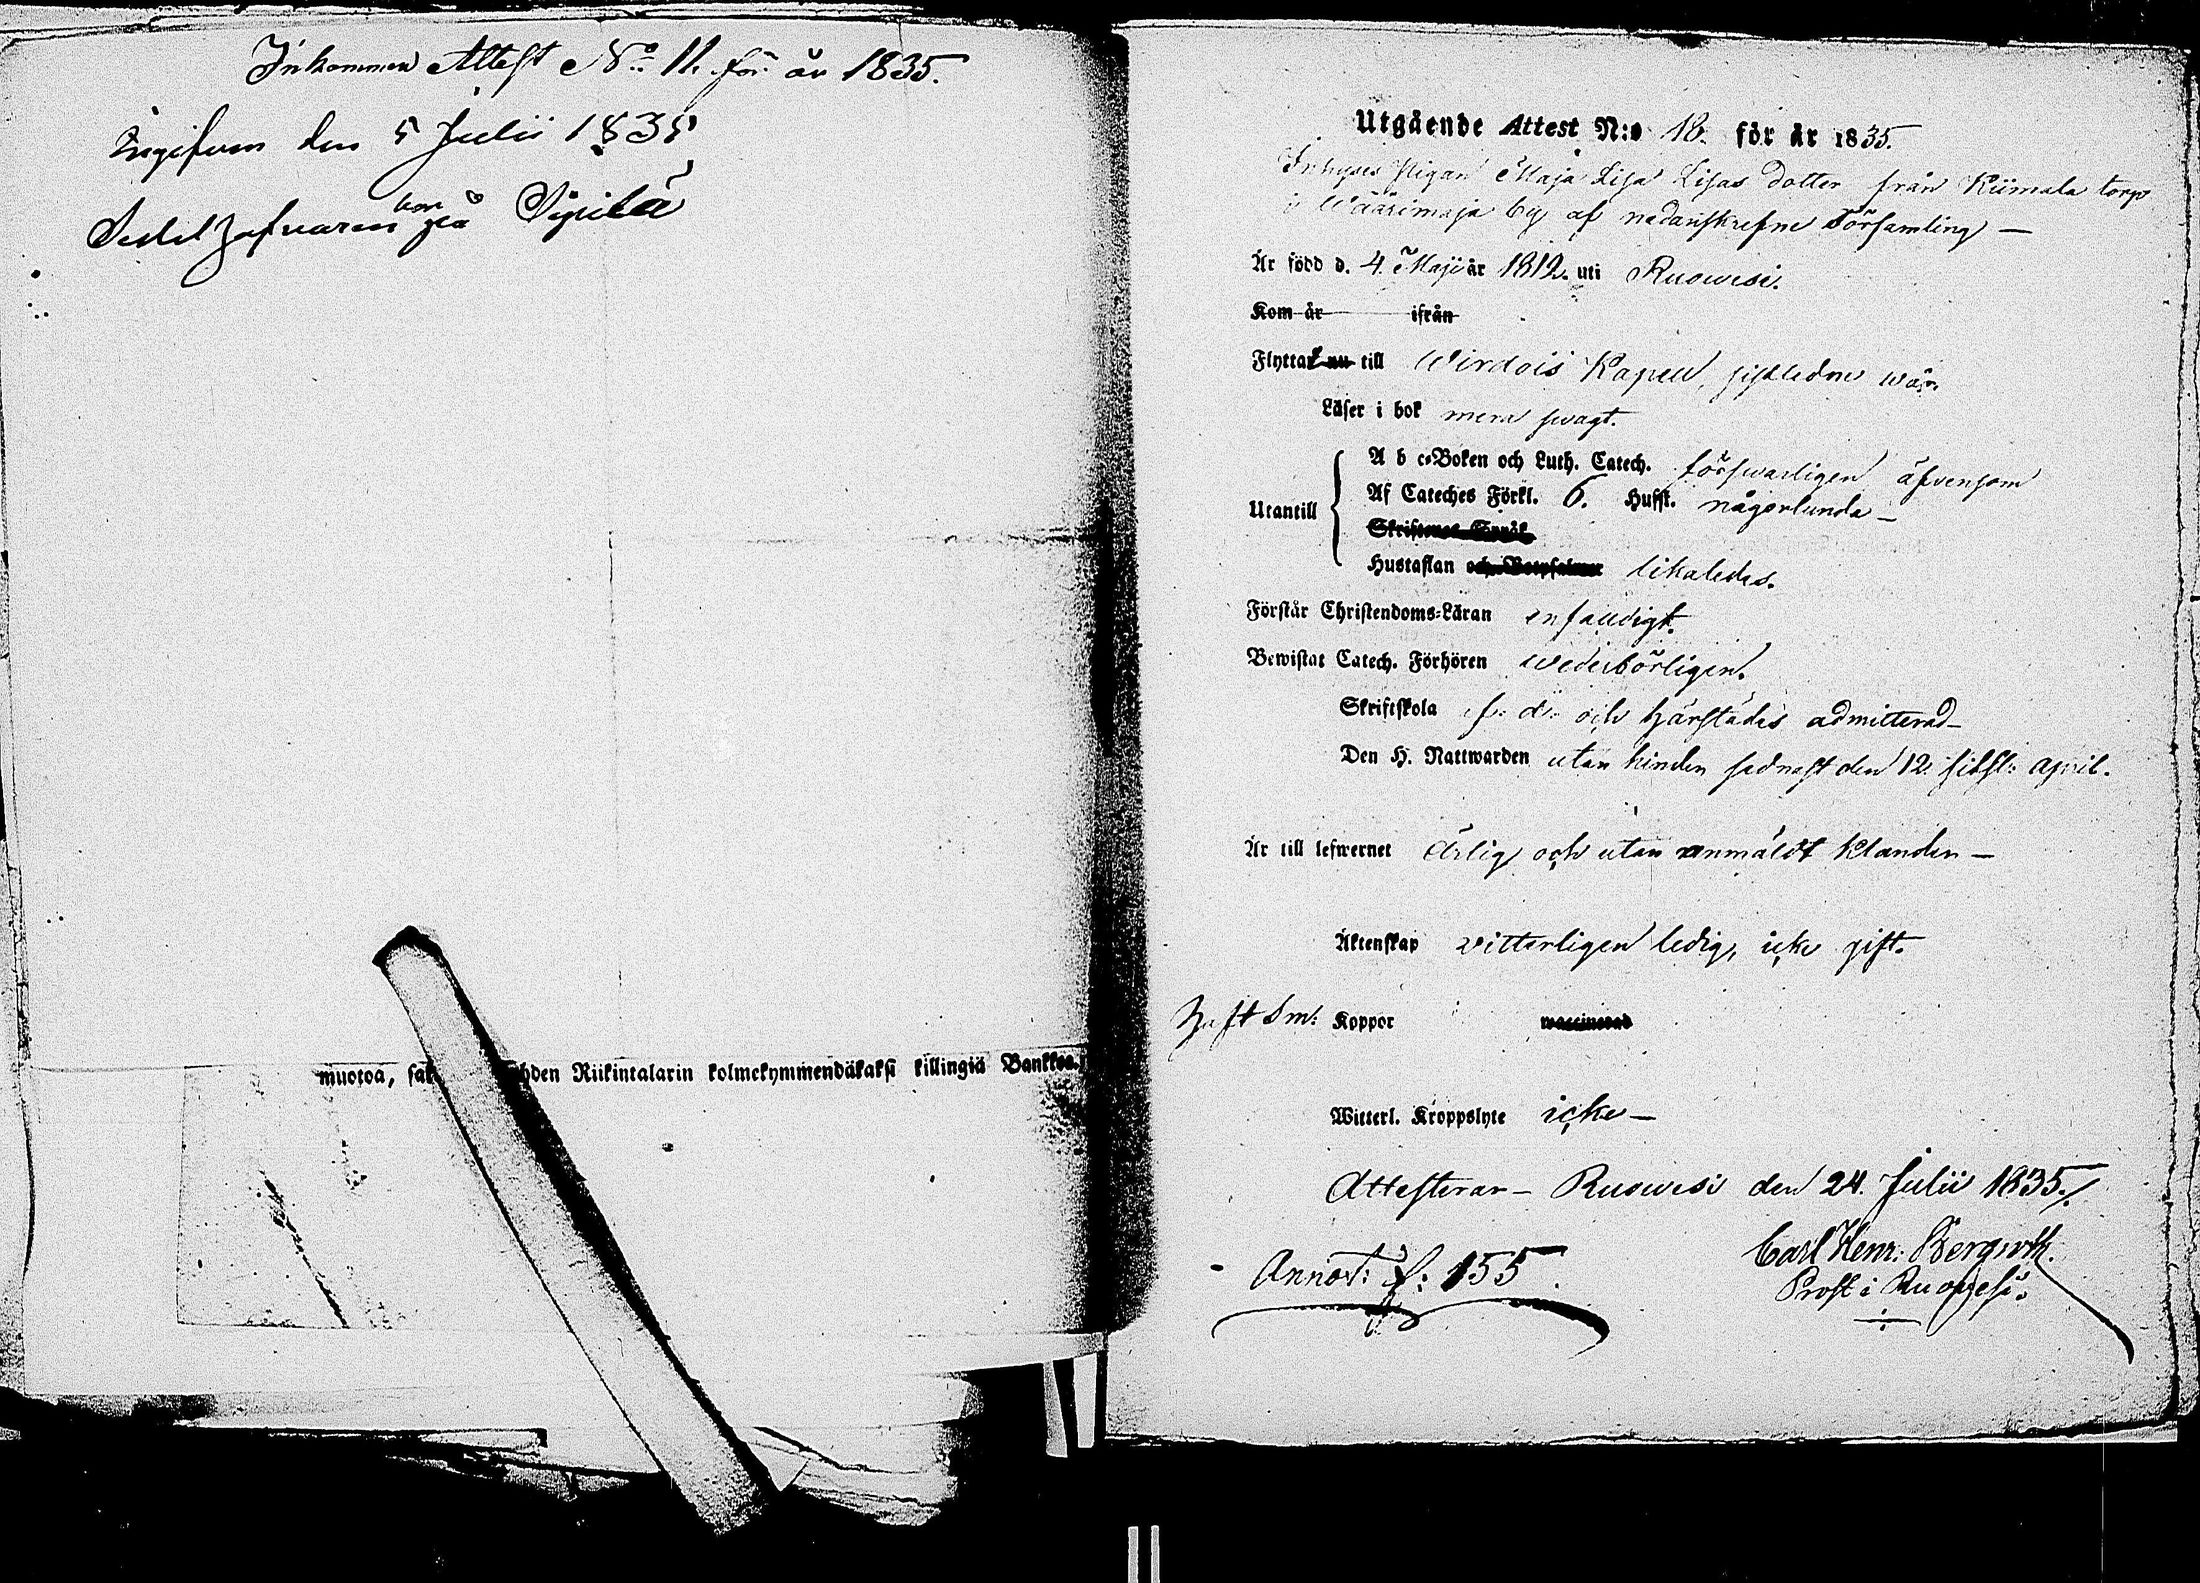 Inkommen Attest No: 11. för år 1835.
Ingifven den 5 Julii 1835
Sedel hafvaren bor på Sipilä
muotoa, hden Riikintalarin kolmekymmendäkaksi killingiä Bankkoa.
Utgående Attest N:o 18. för år 1835.
Inhyses Pigan Maja Lisa Lisas dotter från Kiimala torp
i Wäärimaja by af nedanskrefne Församling —
Är född d. 4. Maji år 1812. uti Ruowesi.
Kom år ifrån
Flyttat nu till Wirdois Kapell, sistledne wår.
Läser i bok mera swagt.
A b c-Boken och Luth. Catech. förswarligen äfvensom
Utantill Af Cateches Förkl. 6. Hufst. någorlunda —
Skriftenes Språk
Hustaflan och Botpsalmer likaledes.
Förstår Christendoms-Läran enfaldigt.
Bewistat Catech. Förhören wederbörligen.
Skriftskola f: d: och härstädes admitterad —
Den H. Nattwarden utan hinder sednast den 12. sistl: April.
Är till lefwernet Ärlig och utan anmäldt klander —
Äktenskap vitterligen ledig, icke gift.
Haft Sm: Koppor waccinerad
Witterl. Kroppslyte icke —
Attesterar — Ruowesi den 24. Julii 1835./.
Carl Henr: Bergroth.
Annot: f: 155.
Prost i Ruowesi.